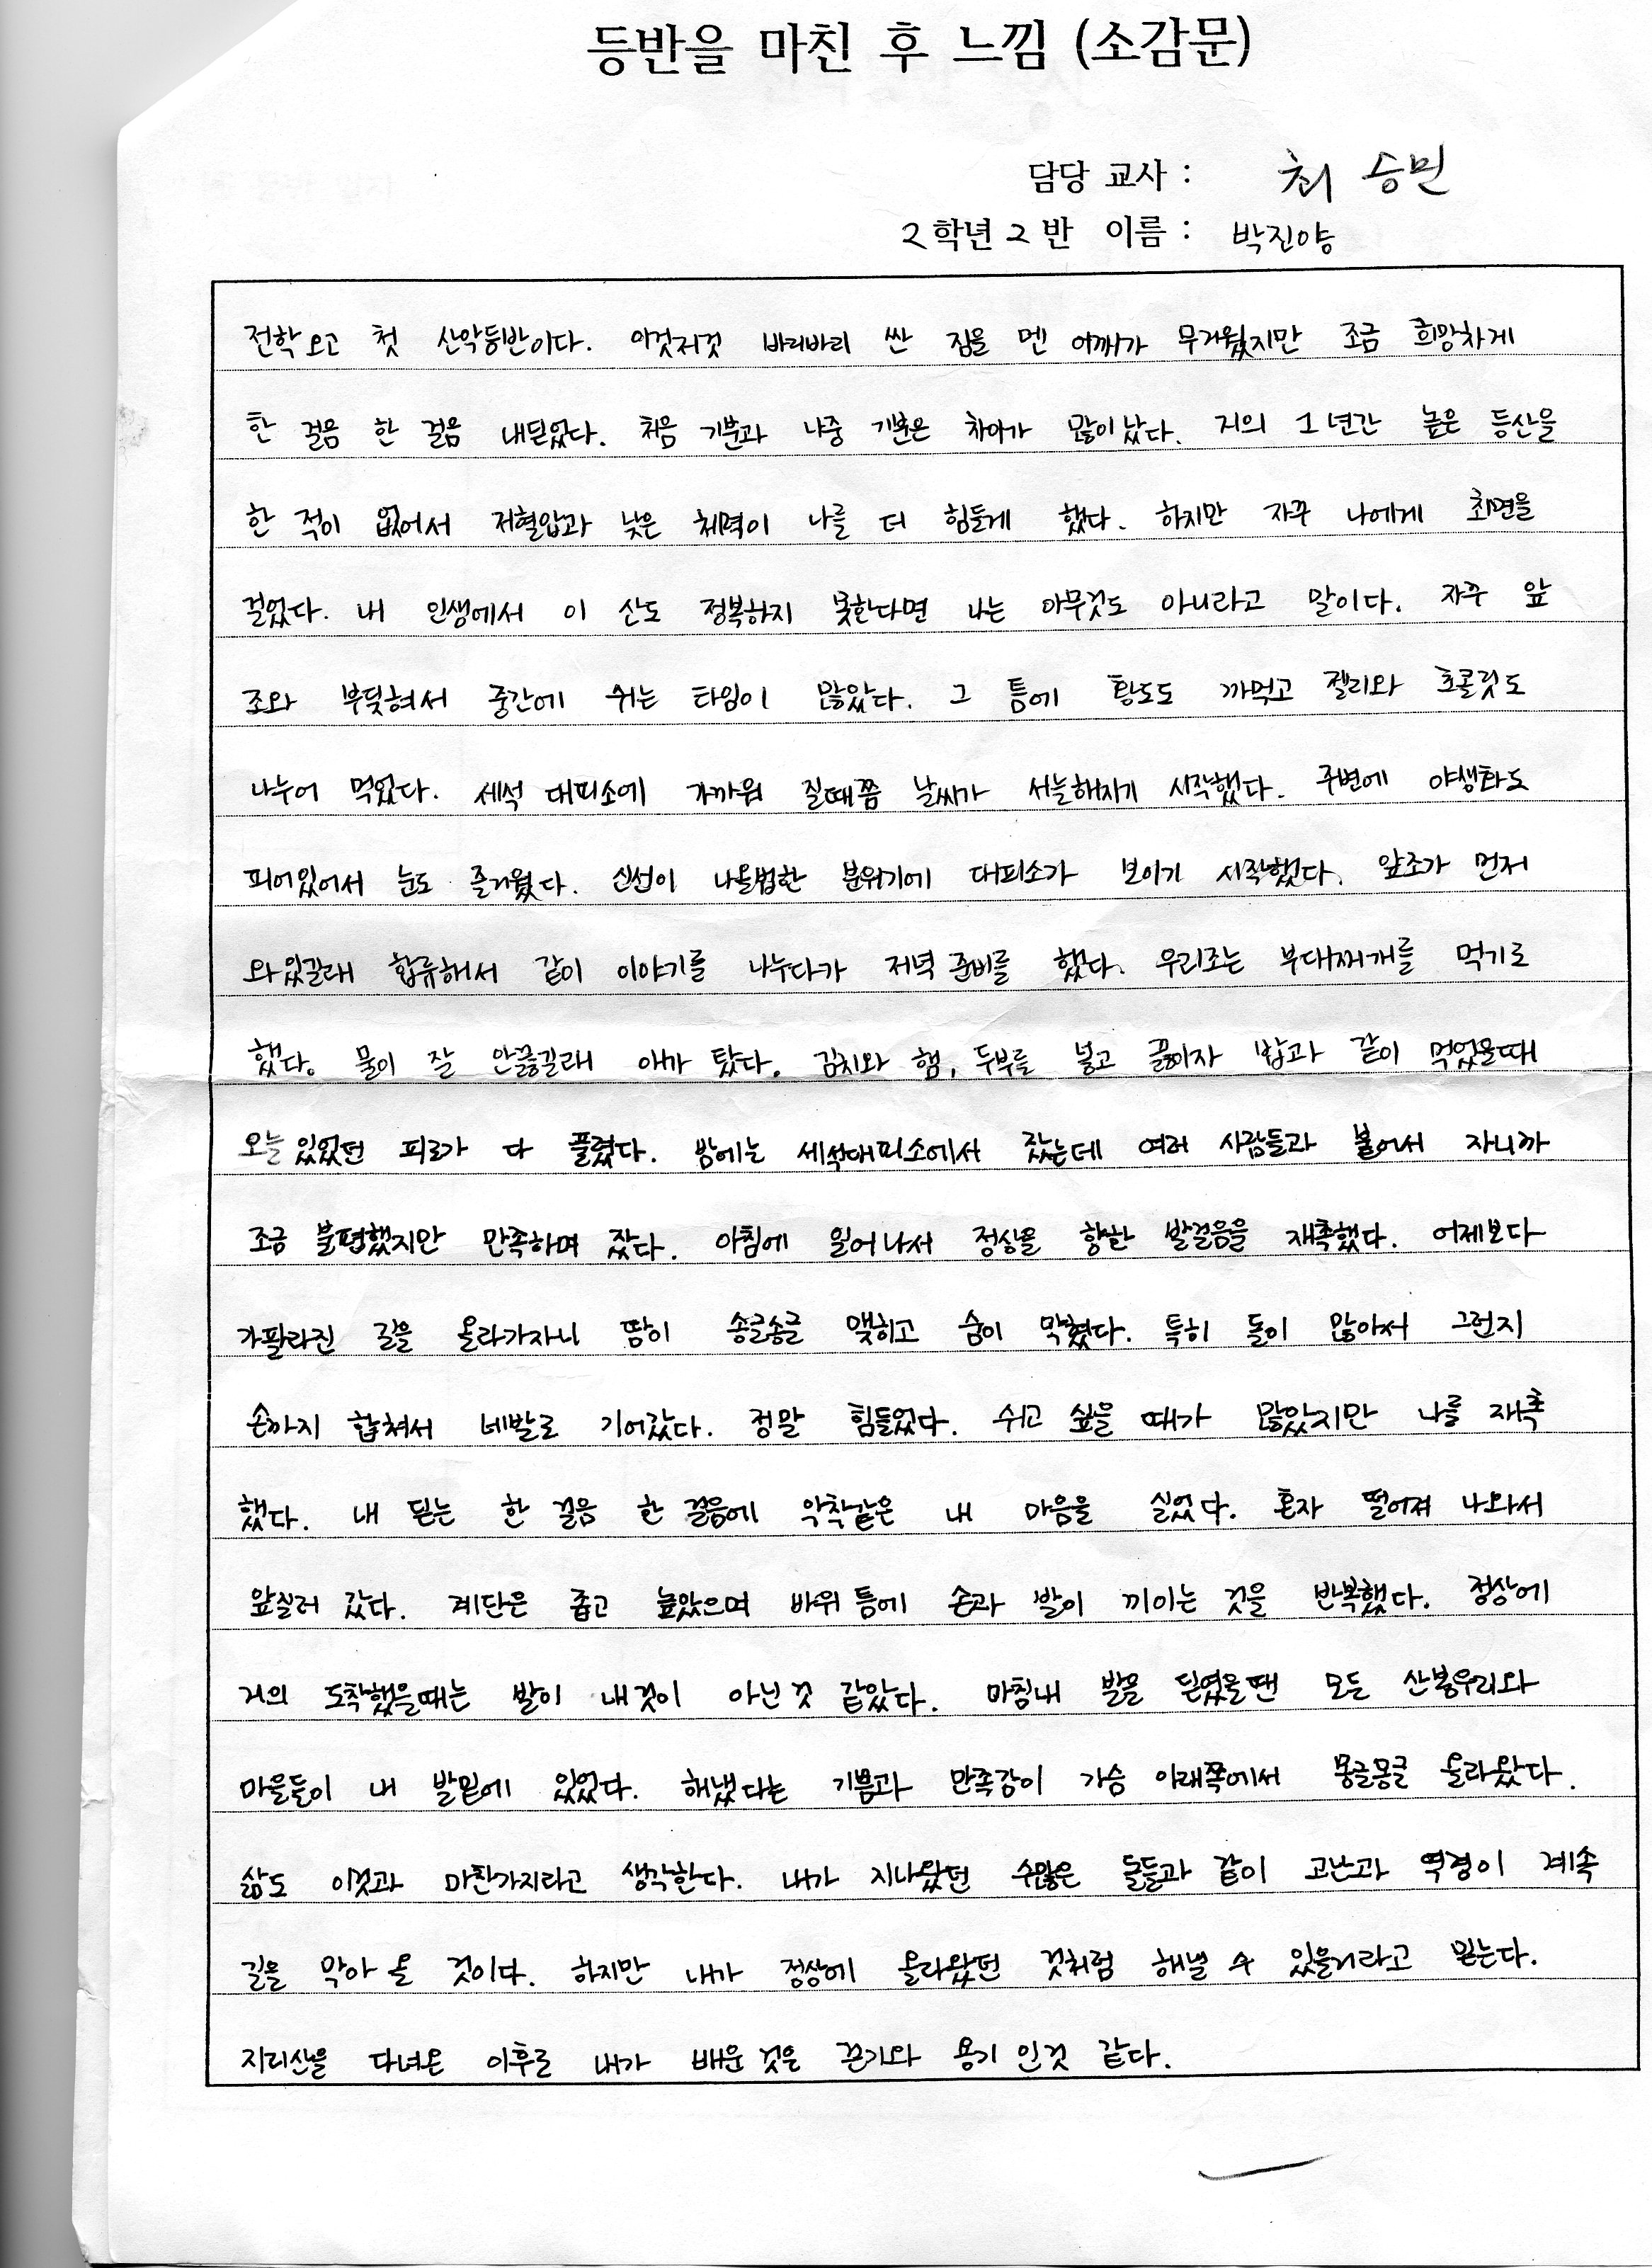 등반을 마친 후 느낌 (소감문)
담당 교사 : 최 승민
2학년 2 반 이름 : 박진양
전학오고 첫 산악등반이다. 이것저것 바리바리 싼 짐을 멘 어깨가 무거웠지만 조금 희망차게
한 걸음 한 걸음 내딛었다. 처음 기분과 나중 기분은 차이가 많이 났다. 거의 1년간 높은 등산을
한 적이 없어서 저혈압과 낮은 체력이 나를 더 힘들게 했다. 하지만 자꾸 나에게 최면을
걸었다. 내 인생에서 이 산도 정복하지 못한다면 나는 아무것도 아니라고 말이다. 자꾸 앞
조와 부딪혀서 중간에 쉬는 타임이 많았다. 그 틈에 황도도 까먹고 젤리와 초콜릿도
나누어 먹었다. 세석 대피소에 가까워 질때쯤 날씨가 서늘해지기 시작했다. 주변에 야생화도
피어있어서 눈도 즐거웠다. 신선이 나올법한 분위기에 대피소가 보이기 시작했다. 앞조가 먼저
와있길래 합류해서 같이 이야기를 나누다가 저녁 준비를 했다. 우리조는 부대찌개를 먹기로
했다. 물이 잘 안끓길래 애가 탔다. 김치와 햄, 두부를 넣고 끓이자 밥과 같이 먹었을때
오늘 있었던 피로가 다 풀렸다. 밤에는 세석대피소에서 잤는데 여러 사람들과 붙어서 자니까
조금 불편했지만 만족하며 잤다. 아침에 일어나서 정상을 향한 발걸음을 재촉했다. 어제보다
가팔라진 길을 올라가자니 땀이 송글송글 맺히고 숨이 막혔다. 특히 돌이 많아서 그런지
손까지 합쳐서 네발로 기어갔다. 정말 힘들었다. 쉬고 싶을 때가 많았지만 나를 재촉
했다. 내 딛는 한 걸음 한 걸음에 악착같은 내 마음을 실었다. 혼자 떨어져 나와서
앞질러 갔다. 계단은 좁고 높았으며 바위 틈에 손과 발이 끼이는 것을 반복했다. 정상에
거의 도착했을때는 발이 내것이 아닌것 같았다. 마침내 발을 딛였을땐 모든 산봉우리와
마을들이 내 발밑에 있었다. 해냈다는 기쁨과 만족감이 가슴 아래쪽에서 몽글몽글 올라왔다.
삶도 이것과 마찬가지라고 생각한다. 내가 지나왔던 수많은 돌들과 같이 고난과 역경이 계속
길을 막아 올 것이다. 하지만 내가 정상에 올라왔던 것처럼 해낼 수 있을거라고 믿는다.
지리산을 다녀온 이후로 내가 배운 것은 끈기와 용기 인것 같다.